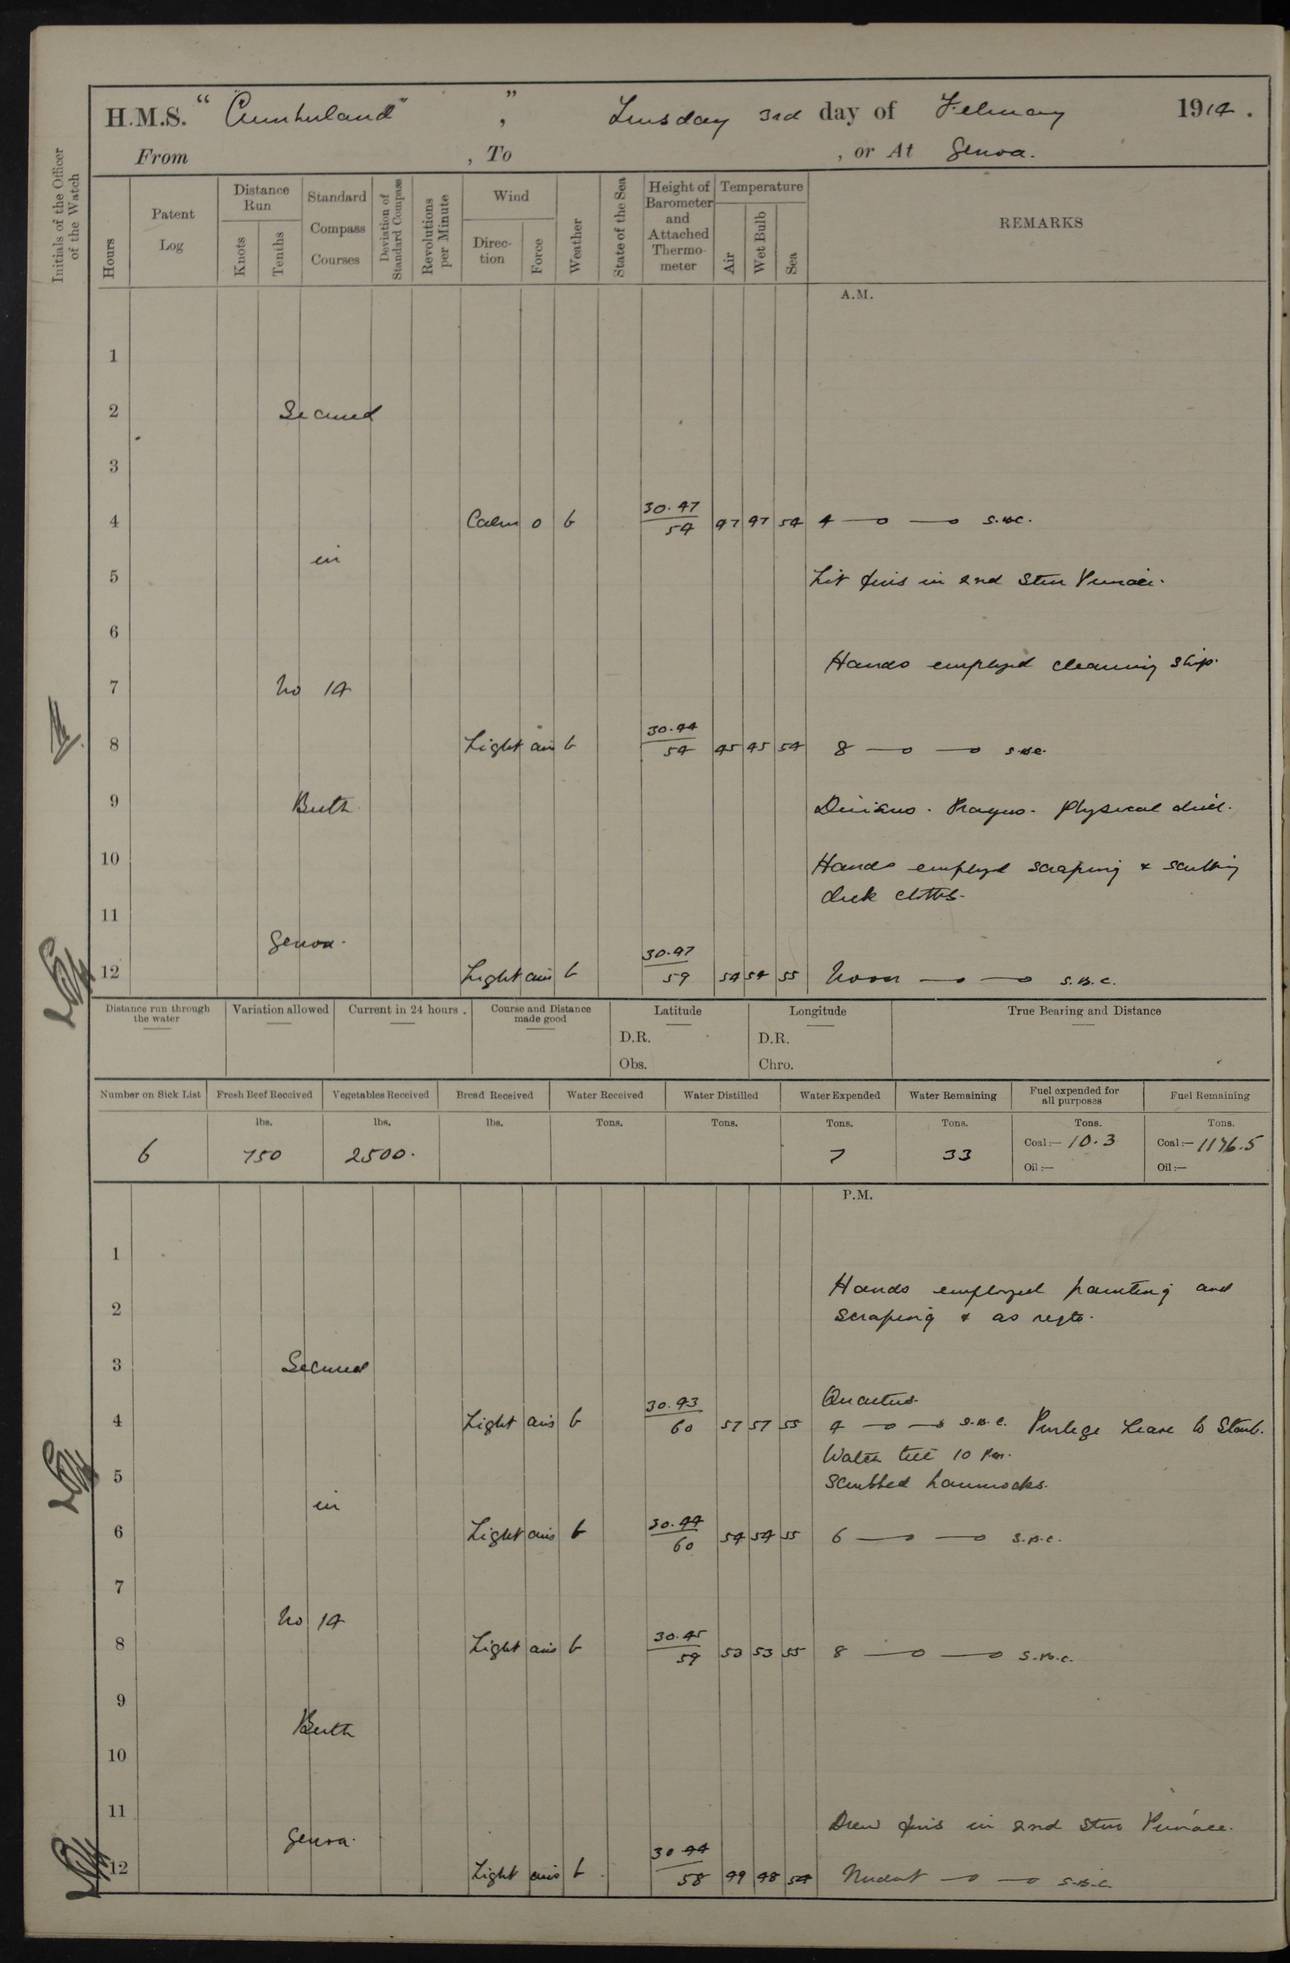 H.M.S. "Cumberland" , " Tuesday 3rd day of February 1914.
From , To , or At Genoa.
Initials of the Officer of the Watch
Hours
Patent Log
Distance Run
Knots
Tenths
Standard Compass Courses
Deviation of Standard Compass
Revolutions per Minute
Wind
Direction
Force
Weather
State of the Sea
Height of Barometer and Attached Thermometer
Temperature
Air
Wet Bulb
Sea
REMARKS
A.M.
1
2 Secured
3
4 Calm 0 b 30.47 54 47 47 54 4 —o —o S.B.C.
in
5 Lit fires in 2nd Stm Pinnace.
6
Hands employed cleaning ship.
7 No 14
8 Light airs b 30.44 54 45 45 54 8 —o —o S.B.C.
9 Berth Divisions. Prayers. Physical drill.
10 Hands employed scraping & scrubbing
deck cloths.
11
Genoa.
12 Light airs b 30.47 59 54 54 55 Noon —o —o S.B.C.
Distance run through the water
Variation allowed
Current in 24 hours.
Course and Distance made good
Latitude
D.R.
Obs.
Longitude
D.R.
Chro.
True Bearing and Distance
Number on Sick List Fresh Beef Received Vegetables Received Bread Received Water Received Water Distilled Water Expended Water Remaining Fuel expended for all purposes Fuel Remaining
lbs. lbs. lbs. Tons. Tons. Tons. Tons. Tons. Tons.
6 750 2500. 7 33 Coal:— 10.3 Coal:— 1176.5
Oil:— Oil:—
P.M.
1
Hands employed painting and
2 scraping & as reqte.
3 Secured
Quarters.
4 Light airs b 30.43 60 57 57 55 4 —o —o S.B.C. Privlege Leave to Starb.
Watch till 10 PM.
5 Scrubbed hammocks.
in
6 Light airs b 30.44 60 54 54 55 6 —o —o S.B.C.
7
No 14
8 Light airs b 30.45 59 53 53 55 8 —o —o S.B.C.
9
Berth
10
11 Drew fires in 2nd Stm Pinnace.
Genoa.
12 Light airs b 30 44 58 49 48 54 Midnt —o —o S.B.C.